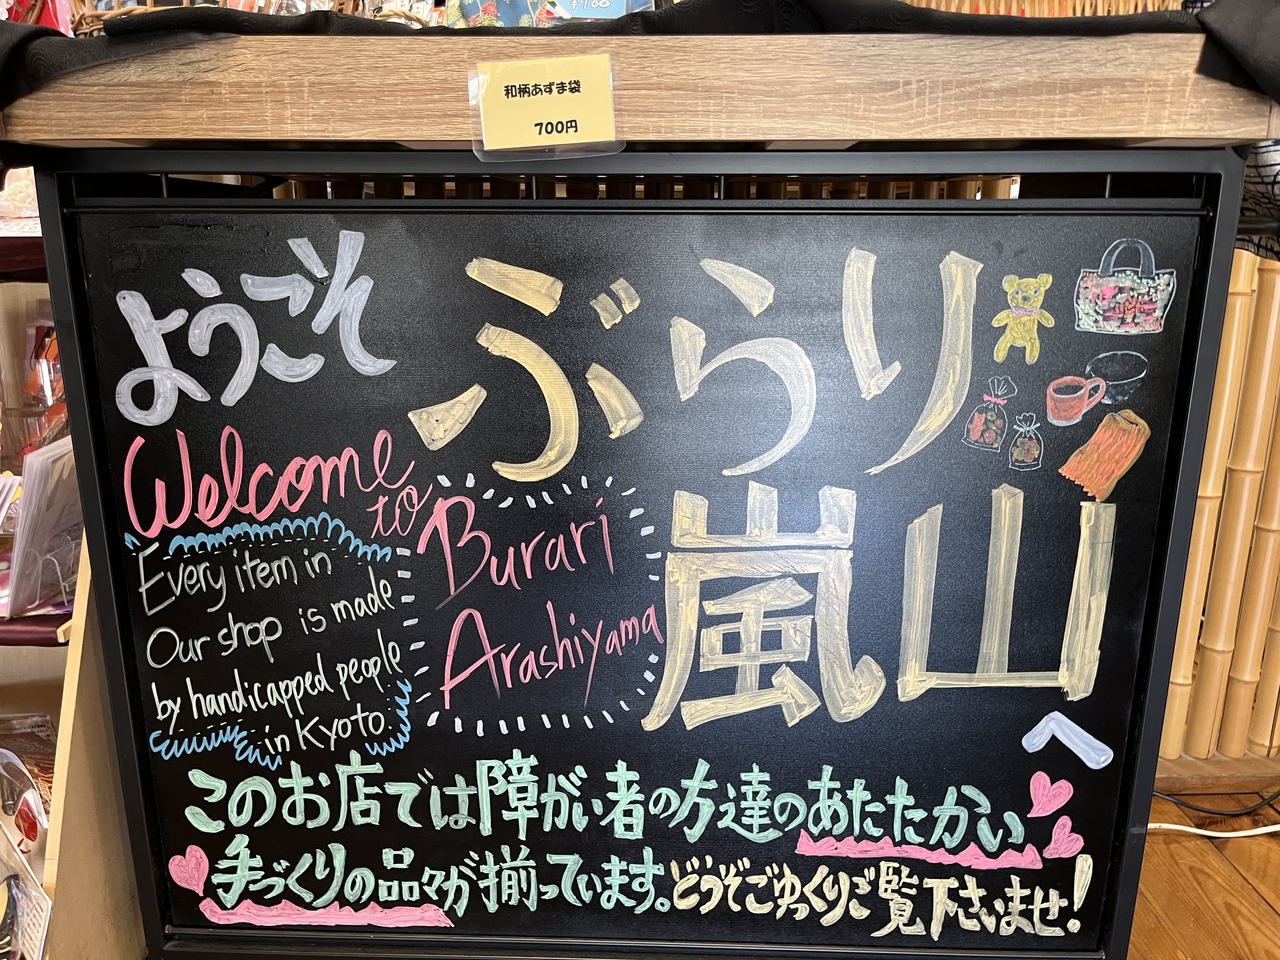 ¥700
和柄あずま袋
700円
ようこそ
ぶらり
嵐山
へ
Welcome
to
Burari
Arashiyama
Every item in
Our shop is made
by handicapped people
in Kyoto
このお店では障がい者の方達のあたたかい
手づくりの品々が揃っています。どうぞごゆっくりご覧下さいませ!